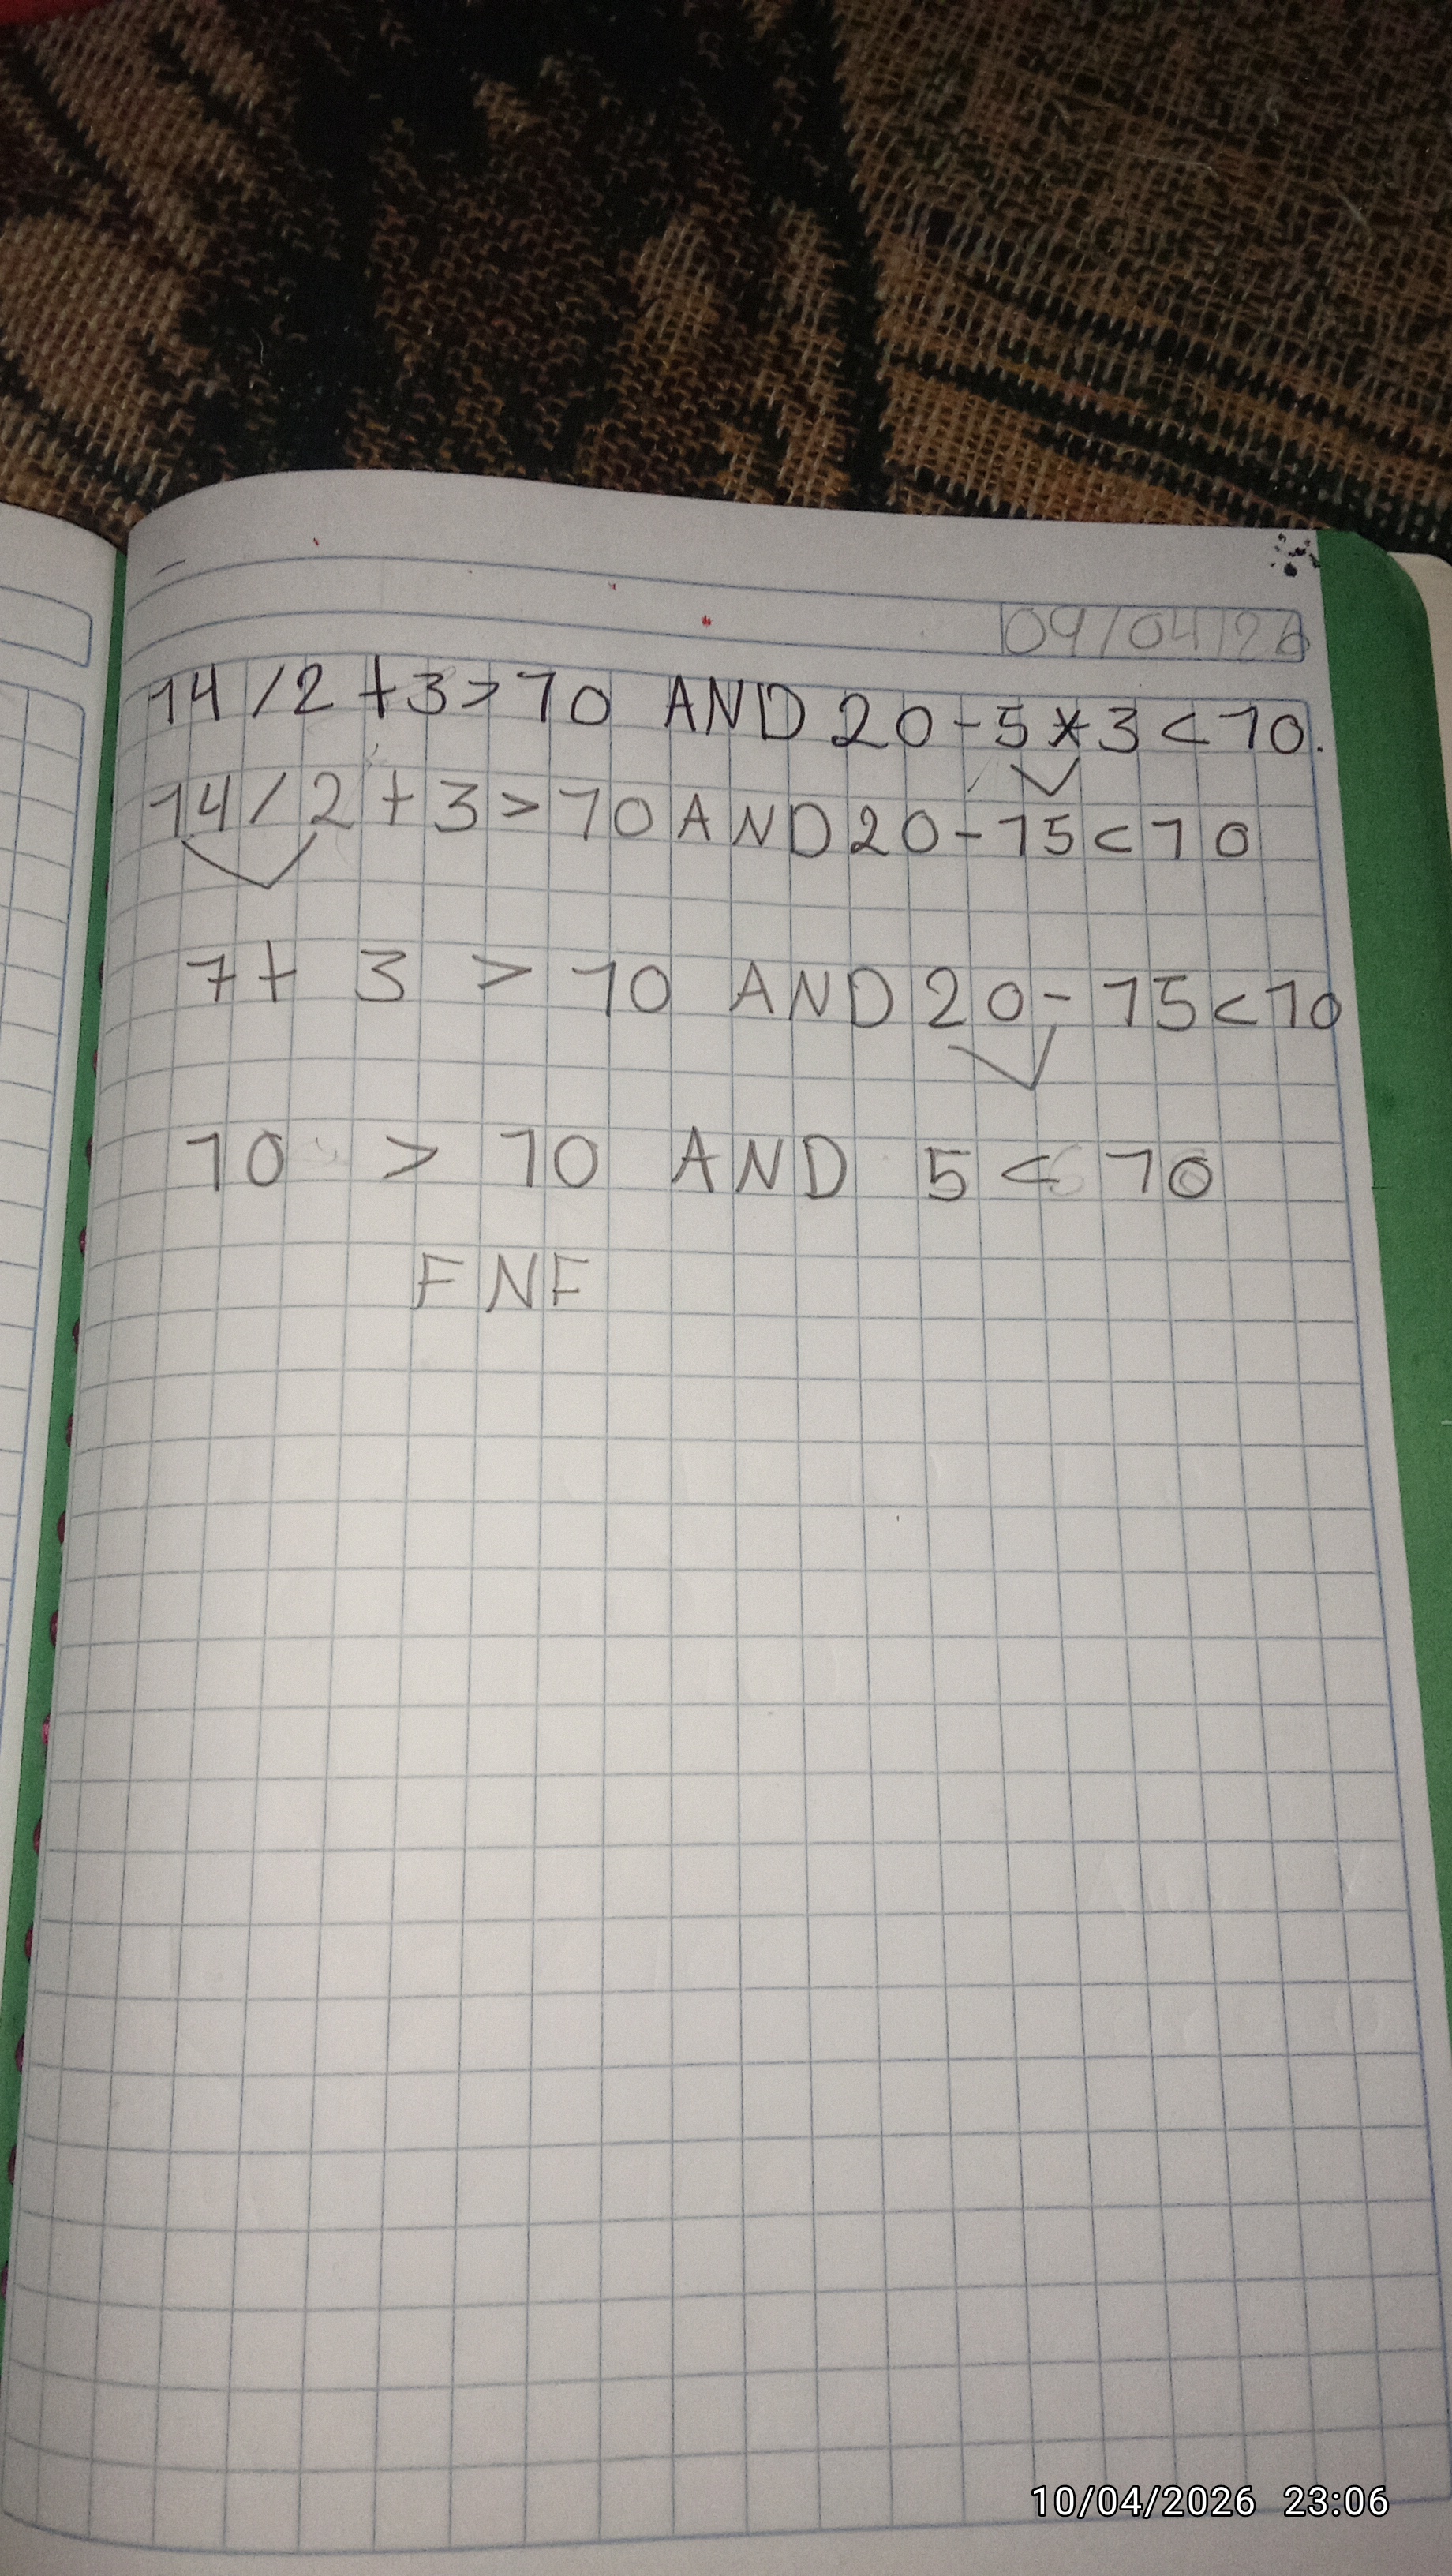 09/04/26
14/2+3>10 AND 20-5*3<10.
14/2+3>10 AND 20-15<10
7+3>10 AND 20-15<10
10>10 AND 5<10
FNF
10/04/2026 23:06